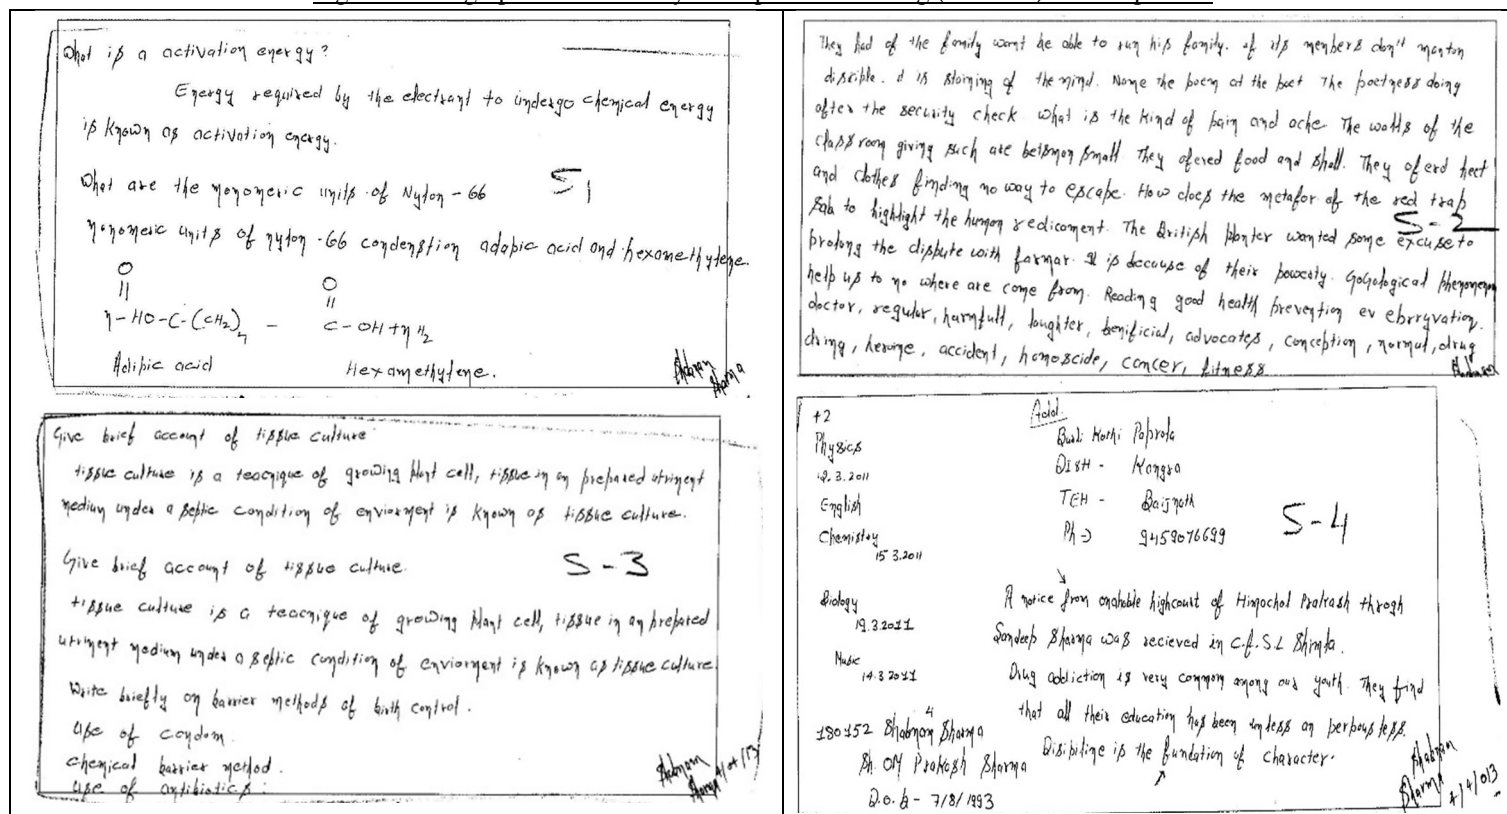 What is a activation energy?
Energy required by the electrant to undergo chemical energy
is known as activation energy.
What are the monomeric units of Nylon - 66
S1
monomeric units of nylon -66 condenstion adapic acid and hexamethylene.
O
||
O
||
n-HO-C-(CH2)4 - C-OH+nH2
Adipic acid Hexamethylene.
Shabnam
Sharma
They had of the family wont be able to run his family. of its members don't manton
disciple. it is storming of the mind. Name the poem at the poet The poetness doing
after the security check what is the kind of pain and ache The walls of the
class room giving such are small They ofered food and shall. They oferd hect
and clothes finding no way to escape. How does the metafor of the red trap
S-2
sab to highlight the human redicament. The British planter wanted some excuse to
prolong the dispute with farmar. It is because of their powerty. phenomenon
help us to no where are come from. Reading good health prevention ev
doctor, regular, harmfull, laughter, benificial, advocates, conception, normal, drug
drug, heroine, accident, homoscide, cancer, fitness
Shabnam
Give brief account of tissue culture
tissue culture is a teacnique of growing plant cell, tissue in an prepared utriment
medium under a septic condition of enviorment is known as tissue culture.
Give brief account of tissue culture.
S-3
tissue culture is a teacnique of growing plant cell, tissue in an prepared
utriment medium under a septic condition of enviorment is known as tissue culture
Write briefly on barrier methods of birth control.
Use of condom.
chemical barrier method.
Use of antibiotics.
Shabnam
Sharma 4/04/13
+2
Physics
12.3.2011
English
Chemistry
15 3.2011
Biology
19.3.2011
Music
14.3 2011
180152 Shabnam Sharma
Sh. OM Prakash Sharma
D.o.B - 7/8/1993
Add.
Kothi Paprola
DISH - Kangra
TEH - Baijnath
Ph -> 9459076699
S-4
A notice from onahable highcourt of Himachal Prakash throgh
Sandeep Sharma was recieved in C.F.S.L Shimla.
Drug addiction is very common among our youth. They find
that all their education has been imless an perpous less.
Disipiline is the fundation of character.
Shabnam
Sharma
4/4/013